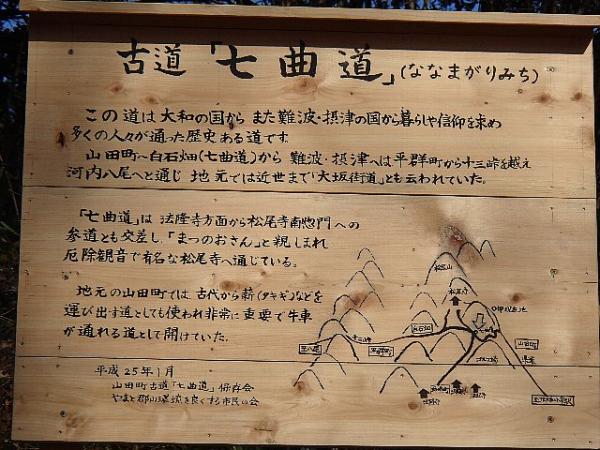 古道「七曲道」(ななまがりみち)
この道は大和の国から また難波・摂津の国から暮らしや信仰を求め
多くの人々が通った歴史ある道です
山田町〜白石畑(七曲道)から 難波・摂津へは平群町から十三峠を越え
河内八尾へと通じ 地元では近世まで「大坂街道」とも云われていた。
「七曲道」は 法隆寺方面から松尾寺南惣門への
参道とも交差し 「まつのおさん」と親しまれ
厄除観音で有名な松尾寺へ通じている。
地元の山田町では 古代から薪(タキギ)などを
運び出す道としても使われ非常に重要で牛車
が通れる道として開けていた。
平成25年1月
山田町古道「七曲道」保存会
やまと郡山環境を良くする市民の会
松尾山
松尾寺
白石畑
山田町
十三峠
平群町
至八尾
法隆寺